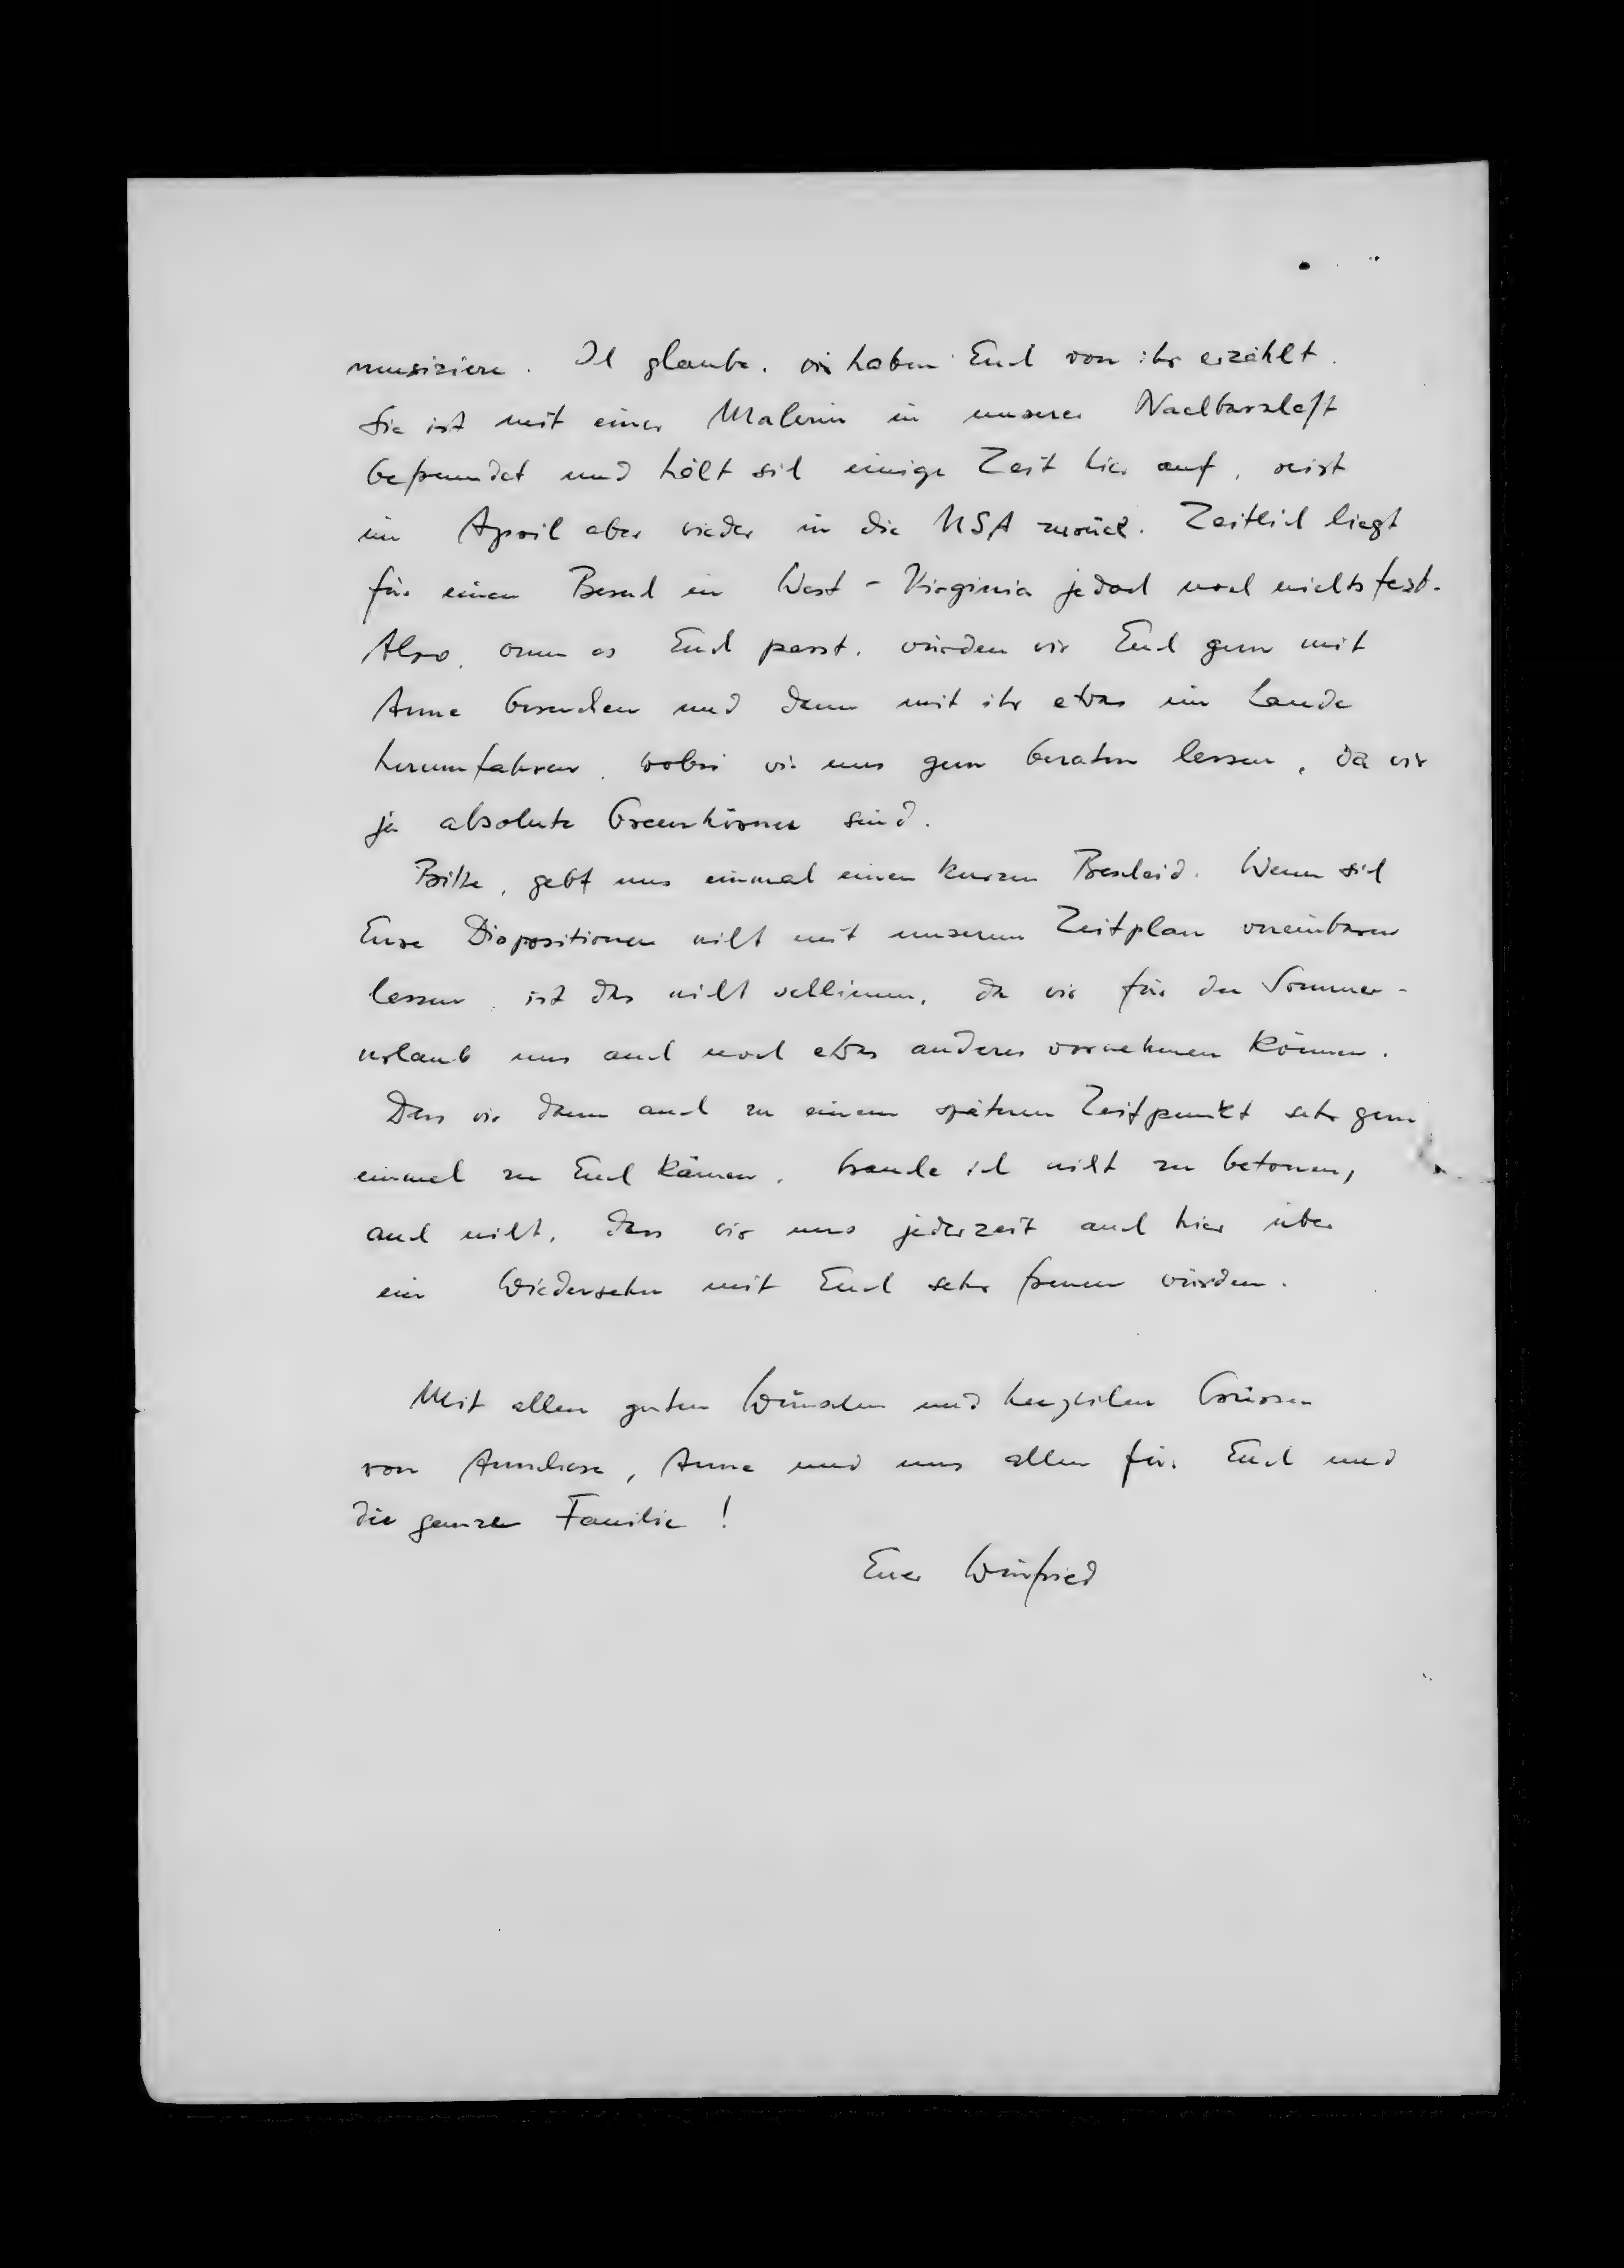 musiziere. Ich glaube, wir haben Euch von ihr erzählt.
Sie ist mit einer Malerin in unserer Nachbarschaft
befreundet und hält sich einige Zeit hier auf, reist
im April aber wieder in die USA zurück. Zeitlich liegt
für einen Besuch in West-Virginia jedoch noch nichts fest.
Also, wenn es Euch passt, würden wir Euch gern mit
Anne besuchen und dann mit ihr etwas im Lande
herumfahren, wobei wir uns gern beraten lassen, da wir
ja absolute Greenhörner sind.
Bitte, gebt uns einmal einen kurzen Bescheid. Wenn sich
Eure Dispositionen nicht mit unserem Zeitplan vereinbaren
lassen, ist das nicht schlimm, da wir für den Sommer-
urlaub uns auch noch etwas anderes vornehmen können.
Dass wir dann auch zu einem späteren Zeitpunkt sehr gern
einmal zu Euch kämen, brauche ich nicht zu betonen,
auch nicht, dass wir uns jederzeit auch hier über
ein Wiedersehn mit Euch sehr freuen würden.
Mit allen guten Wünschen und herzlichen Grüssen
von Anneliese, Anne und uns allen für Euch und
die ganze Familie!
Euer Winfried